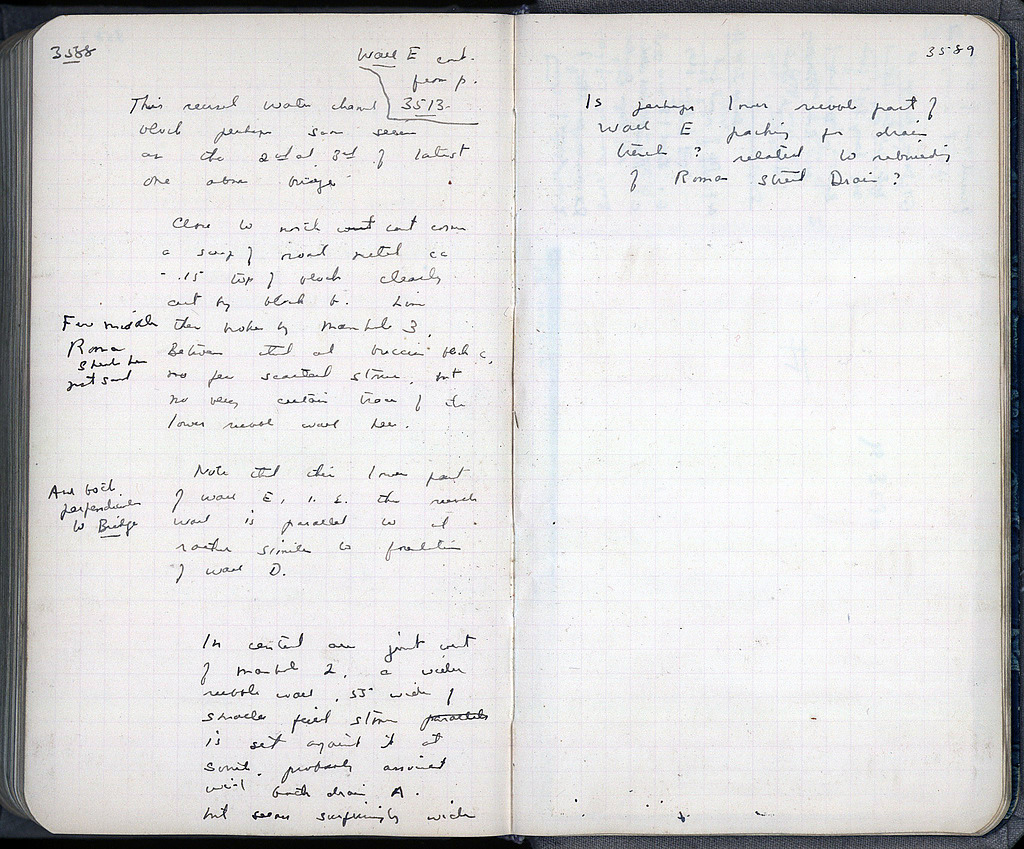 3588
Wall E cont.
from p.
3513
This reused water channel
block perhaps same
as the 2nd and 3rd of latest
one above bridge
Close to north west
a of road metal ca
.15 top of block clearly
cut by block b.
then broken by manhole 3.
Few middle
Roman
just sand
Between that and block c,
no few scattered stones, but
no very certain trace of the
lower rubble wall here.
Note that this lower part
of wall E, i.e. the rubble
wall is parallel to and
rather similar to foundation
of wall D.
And both
perpendicular
to Bridge
In central area just west
of manhole 2, a wider
rubble wall, .55 wide of
smaller field stones parallel
is set against it at
south, probably associated
with bath drain A.
but seems surprisingly wide
3589
Is perhaps lower rubble part of
Wall E packing for drain
trench? related to rebuilding
of Roman Street Drain?